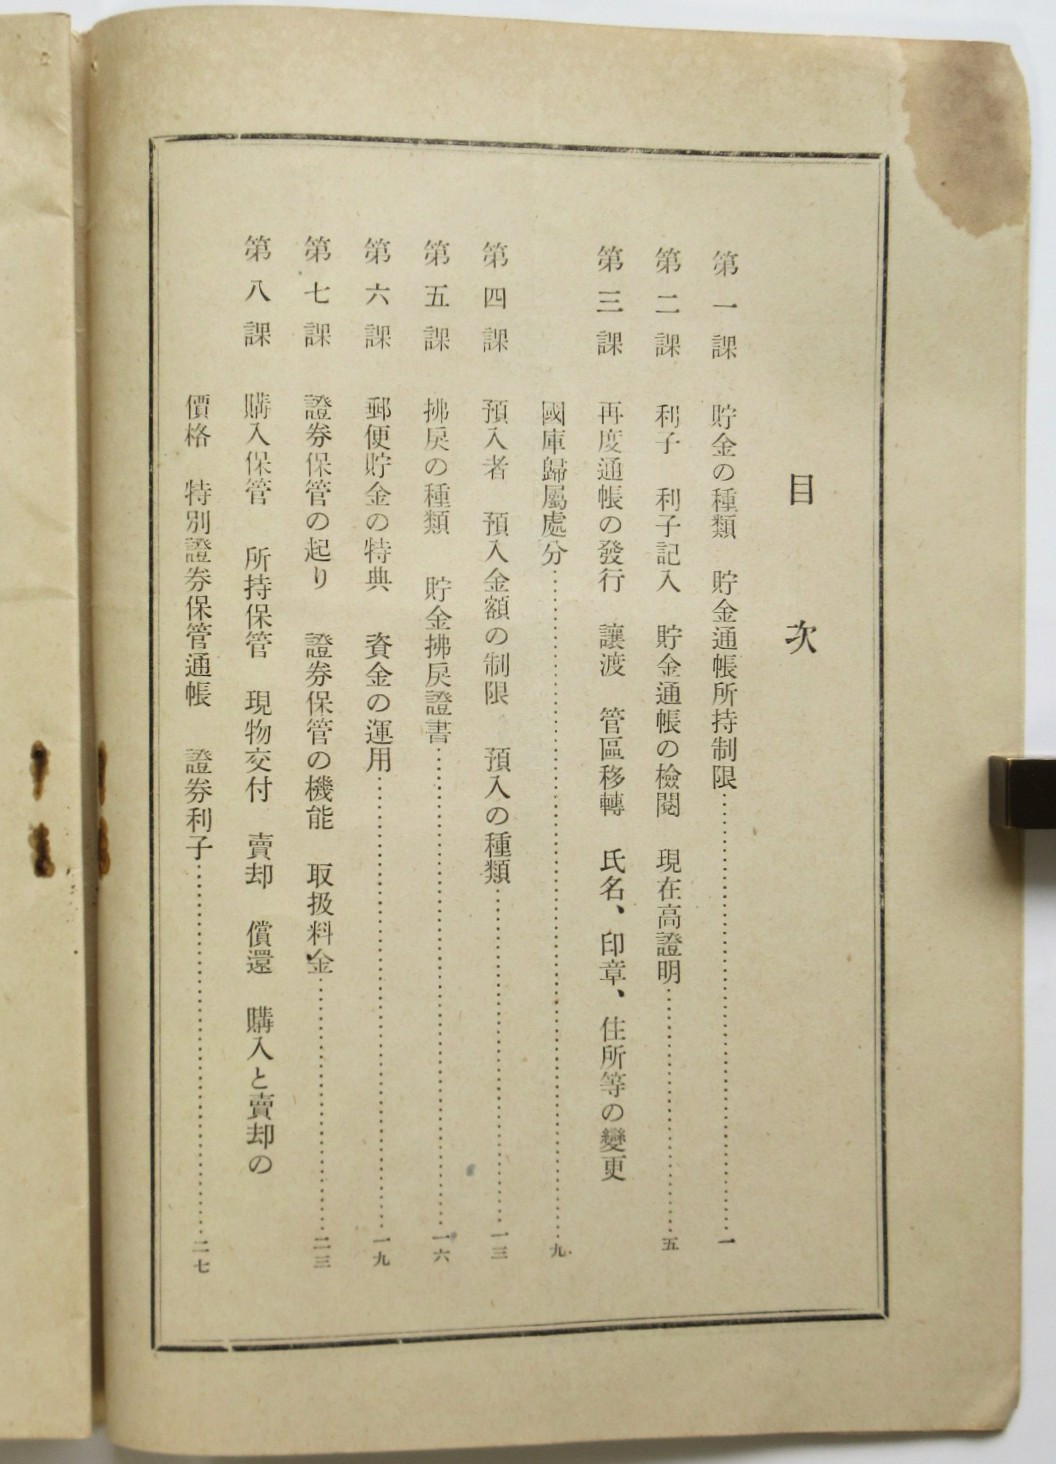 目次
第一課 貯金の種類 貯金通帳所持制限……一
第二課 利子 利子記入 貯金通帳の檢閱 現在高證明……五
第三課 再度通帳の發行 讓渡 管區移轉 氏名、印章、住所等の變更
國庫歸屬處分……九
第四課 預入者 預入金額の制限 預入の種類……一三
第五課 拂戾の種類 貯金拂戾證書……一六
第六課 郵便貯金の特典 資金の運用……一九
第七課 證券保管の起り 證券保管の機能 取扱料金……二三
第八課 購入保管 所持保管 現物交付 賣却 償還 購入と賣却の
價格 特別證券保管通帳 證券利子……二七